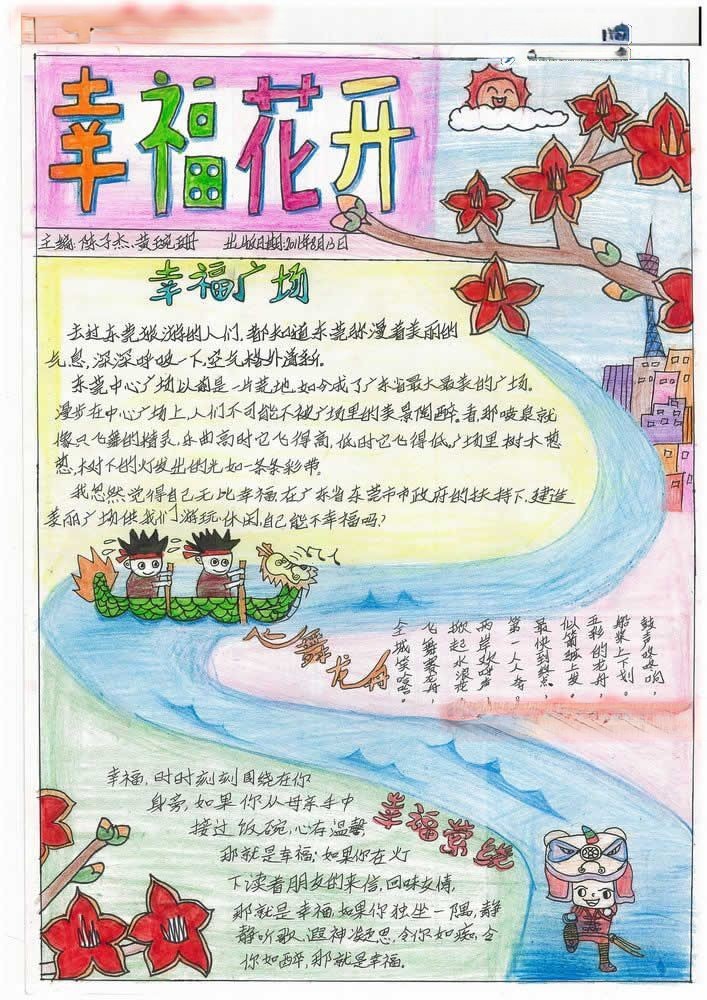 幸福花开
主编:陈子杰、黄琬珊 出版日期:2011年8月13日
幸福广场
去过东莞旅游的人们,都知道东莞弥漫着美丽的
气息,深深呼吸一下,空气格外清新。
东莞中心广场以前是一片荒地,如今成了广东省最大最美的广场。
漫步在中心广场上,人们不可能不被广场里的美景陶醉。看,那喷泉就
像只飞舞的精灵,乐曲高时它飞得高,低时它飞得低。广场里树木葱
葱,树下的灯发出的光如一条条彩带。
我忽然觉得自己无比幸福,在广东省东莞市市政府的扶持下,建造
美丽广场供我们游玩休闲,自己能不幸福吗?
心舞龙舟
鼓声咚咚响,
船桨上下划。
五彩的龙舟,
似箭拔上发。
最快到终点,
第一人人夸。
两岸欢呼声,
掀起水浪花
飞舞着龙舟,
全城笑哈哈。
幸福萦绕
幸福,时时刻刻围绕在你
身旁,如果你从母亲手中
接过饭碗,心存温馨
那就是幸福;如果你在灯
下读着朋友的来信,回味友情,
那就是幸福,如果你独坐一隅,静
静听歌,凝神思,令你如痴,令
你如醉,那就是幸福。